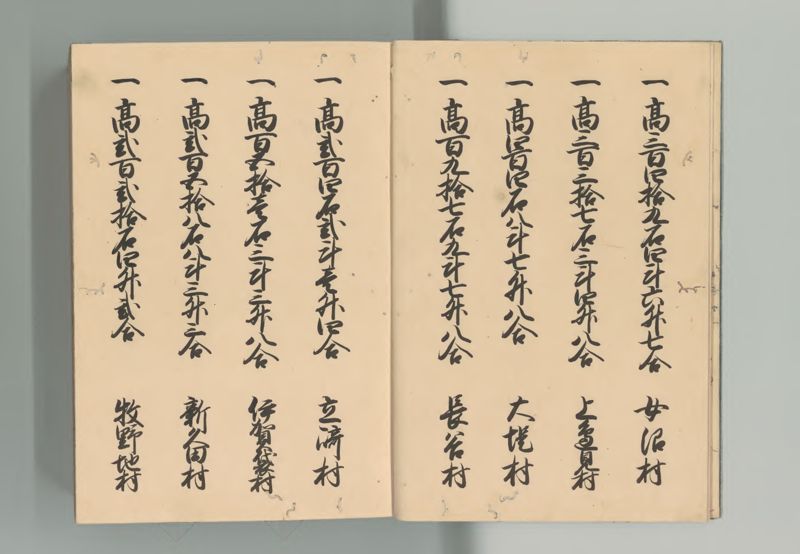 一高三百四拾九石四斗六升七合 女沼村
一高三百三拾七石三斗四升八合 上高見村
一高四百四石八斗七升八合 大堤村
一高百九拾七石九斗七升八合 長谷村
一高弐百四石弐斗壱升四合 立﨑村
一高百五拾壱石三斗三升八合 伊賀袋村
一高弐百五拾八石八斗三升三合 新久田村
一高弐百弐拾石四升弐合 牧野地村